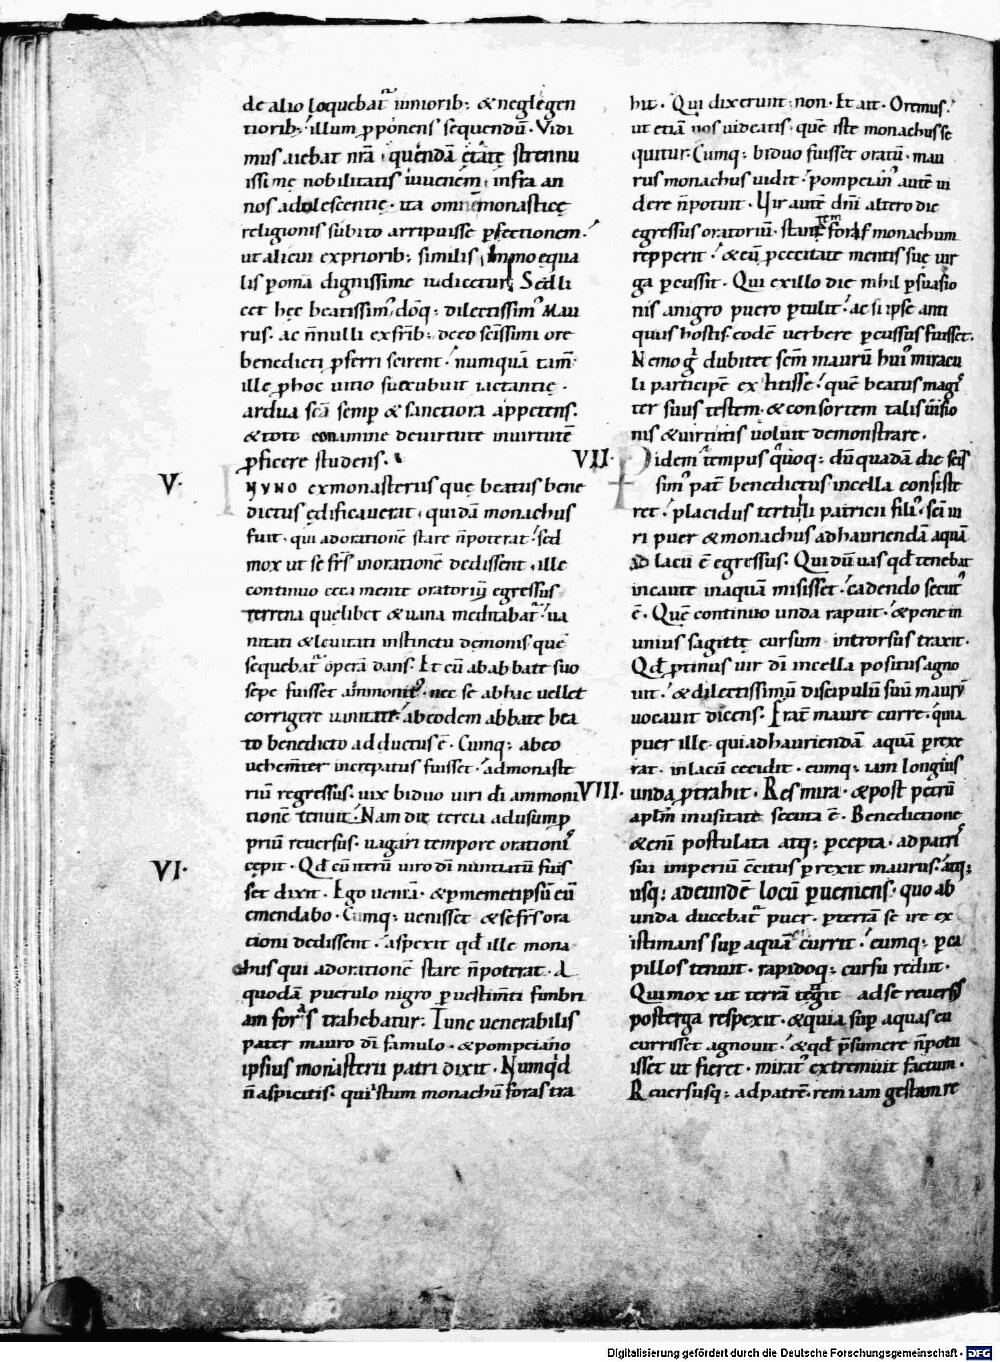 de alio loquebat᷑ iuniorib; & neglegen
tiorib; illum p̱ponens sequendū. Vidi
mus aiebat nr̄ā quendā ętate strennu
issimę nobilitatis iuvenem, infra an
nos adolescentię. ita omnē monasticę
religionis subito arripuisse p̱fectionem.
ut alicui ex priorib; similis, immo equa
lis p omā dignissime iudicetur. Sed li
cet hec beatissim᷒ dōq; dilectissim᷒ Mau
rus. ac n̄nulli ex fr̄ib; de eo scīssimi ore
benedicti p̱ferri scirent. numquā tam̄
ille p hoc uitio succubuit iactantię.
ardua sēa semp & sanctiora appetens.
& toto conamine de uirtute in uirtutē
p̱ficere studens.
V. IN VNO ex monasteriis que beatus bene
dictus ędificauerat, quidā monachus
fuit. qui ad orationē stare n̄ poterat. sed
mox ut se fr̄s in orationē dedissent, ille
continuo ceca mente oratoriū egressus
terrena quelibet & uana meditabat᷑. ua
nitati & leuitati instinctu demonis quē
sequebat᷑ operā dans. Et cū ab abbate suo
sepe fuisset ammonit᷒. nec se ab hac uellet
corrigere uanitate. ab eodem abbate bea
to benedicto adductus ē. Cumq; ab eo
uehem̄ter increpatus fuisset. ad monaste
riū regressus. uix biduo uiri dī ammoni
tionē tenuit. Nam die tercia ad usum p̱
priū reuersus. uagari tempore orationis
VI. cepit. Qd̄ cū iterū uiro dī nuntiatū fuis
set dixit. Ego ueniā. & p memetipsū eū
emendabo. Cumq; uenisset & se fr̄s ora
tioni dedissent. aspexit qd̄ ille mona
chus qui ad orationē stare n̄ poterat. a
quodā puerulo nigro p uestim̄ti fimbri
am foras trahebatur. Tunc uenerabilis
pater mauro dī famulo. & pompeiano
ipsius monasterii patri dixit. Numqd
n̄ aspicitis. qui istum monachū foras tra
hit. Qui dixerunt non. Et ait. Oremus.
ut etiā uos uideatis. quē iste monachus se
quitur. Cumq; biduo fuisset oratū. mau
rus monachus uidit. pompeian᷒ autē ui
dere n̄ potuit. Vir autē dn̄i altero die
egressus oratoriū. stantem foras monachum
repperit. & eū p cecitate mentis suę uir
ga p̱cussit. Qui ex illo die nihil p̱suasio
nis a nigro puero p̱tulit. ac si ipse anti
quus hostis eodē uerbere p̱cussus fuisset.
Nemo g̊ dubitet scm̄ maurū hui᷒ miracu
li participē extitisse. quē beatus magis
ter suus testem & consortem talis uisio
nis & uirtutis uoluit demonstrare.
VII. Pidem tempus quoq; dū quadā die scīs
sim᷒ pat̄ benedictus in cella consiste
ret. placidus tertulli patricii fili᷒. scī ui
ri puer & monachus ad hauriendā aquā
ad lacū ē egressus. Qui dū uas qd̄ tenebat
incaute in aquā misisset. cadendo secut᷒
ē. Quē continuo unda rapuit. & pene in
unius sagittę cursum introrsus traxit.
Qd̄ p̱tinus uir dī in cella positus agno
uit. & dilectissimū discipulū suū maurū
uocauit dicens. Frat̄ maure curre. quia
puer ille qui ad hauriendā aquā p̱rexe
rat. in lacū cecidit. cumq; iam longius
VIII. unda p̱trahit. Res mira. & post petrū
aplm̄ inusitate secuta ē. Benedictione
& enī postulata atq; p̱cepta. ad patris
sui imperiū c̄citus p̱rexit maurus. atq;
usq; ad eundē locū p̱ueniens. quo ab
unda ducebat᷑ puer. p terrā se ire ex
istimans sup aquā currit. cumq; p ca
pillos tenuit. rapidoq; cursu rediit.
Qui mox ut terrā tetigit ad se reuersus
post terga respexit. & quia sup aquas cu
currisset agnouit. & qd̄ p̱sumere n̄ potu
isset ut fieret. mirat᷒ extremuit factum.
Reuersusq; ad patrē. rem iam gestam re
Digitalisierung gefördert durch die Deutsche Forschungsgemeinschaft - DFG